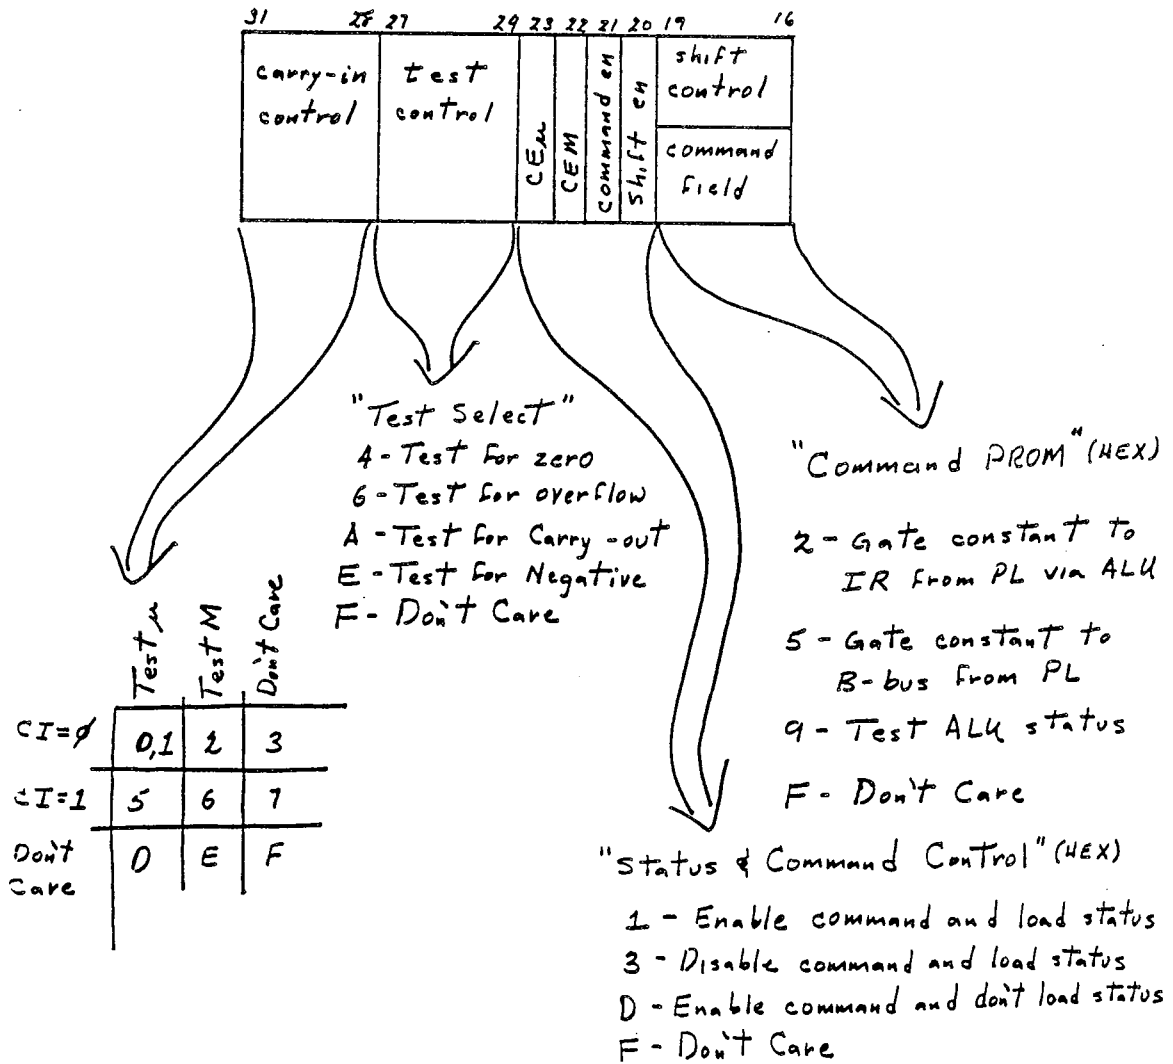 31 28 27 24 23 22 21 20 19 16
carry-in
control
test
control
CEμ
CEM
command en
shift en
shift
control
command
field
"Test Select"
4 - Test for zero
6 - Test for overflow
A - Test for Carry-out
E - Test for Negative
F - Don't Care
"Command PROM" (HEX)
2 - Gate constant to
IR from PL via ALU
5 - Gate constant to
B-bus from PL
9 - Test ALU status
F - Don't Care
Test μ Test M Don't Care
CI=0 0,1 2 3
CI=1 5 6 7
Don't
Care D E F
"Status & Command Control" (HEX)
1 - Enable command and load status
3 - Disable command and load status
D - Enable command and don't load status
F - Don't Care